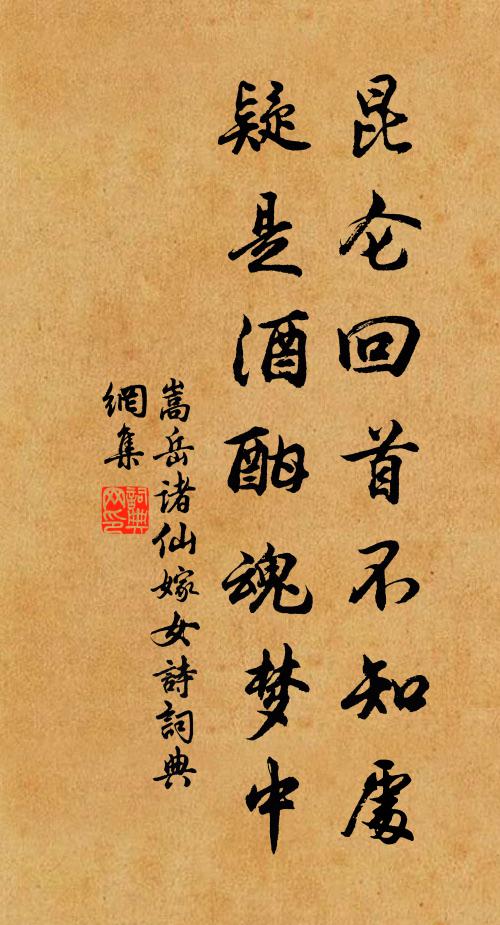 昆仑回首不知處
疑是酒酣魂梦中
嵩岳诸仙嫁女詩詞典
網集
詞典
网印